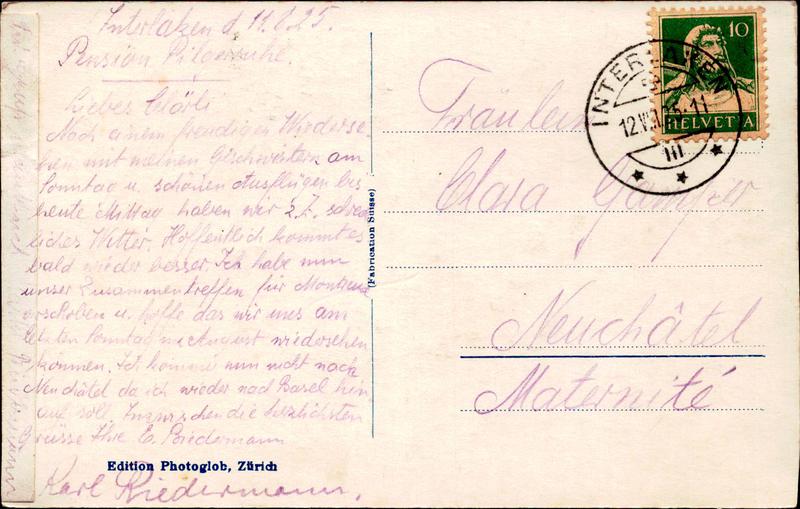 Interlaken d 11.8.25.
Pension Pilgerruhe.
Liebes Clörli
Nach einem freudigen Wiederse-
hen mit meinen Geschwistern am
Sonntag u. schönen Ausflügen bis
heute Mittag haben wir z. Z. schreck
liches Wetter. Hoffentlich kommt es
bald wieder besser. Ich habe nun
unser Zusammentreffen für Montreux
verschoben u. hoffe das wir uns am
letzten Sonntag im August wiedersehen
können. Ich komme nun nicht nach
Neuchâtel da ich wieder nach Basel hin
auf soll. Inzwischen die herzlichsten
Grüsse Ihre E. Biedermann
Karl Riedermann.
Edition Photoglob, Zürich
(Fabrication Suisse)
Fräulein
Clara Gamper
Neuchâtel
Maternité
10
HELVETIA
INTERLAKEN
12.VIII.25.11
III